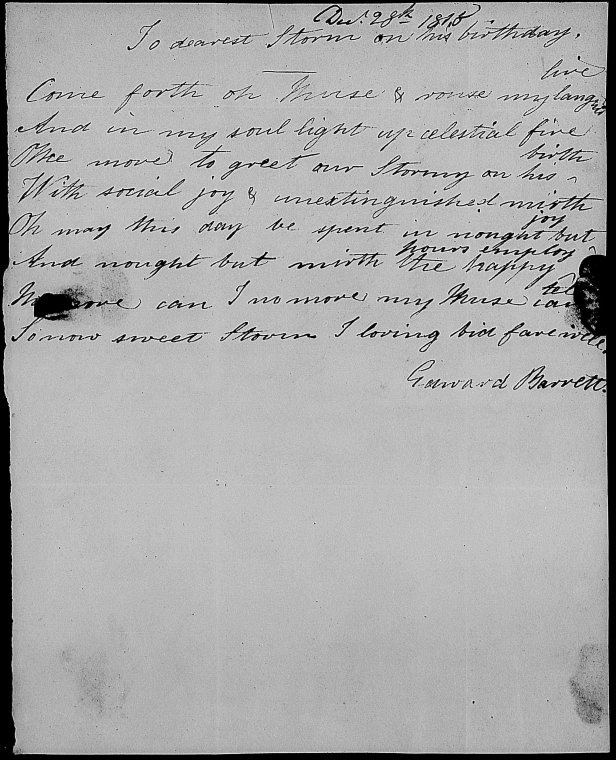 Decr. 28th 1818
To dearest Storm on his birthday.
Come forth oh Muse & rouse my languid
live
And in my soul light up celestial fire
Once more to greet our Stormy on his
birth
With social joy & unextinguished mirth
Oh may this day be spent in nought but
joy
And nought but mirth the happy
hours employ
No more can I no more my Muse can
tell
So now sweet Storm I loving bid farewell
Edward Barrett.